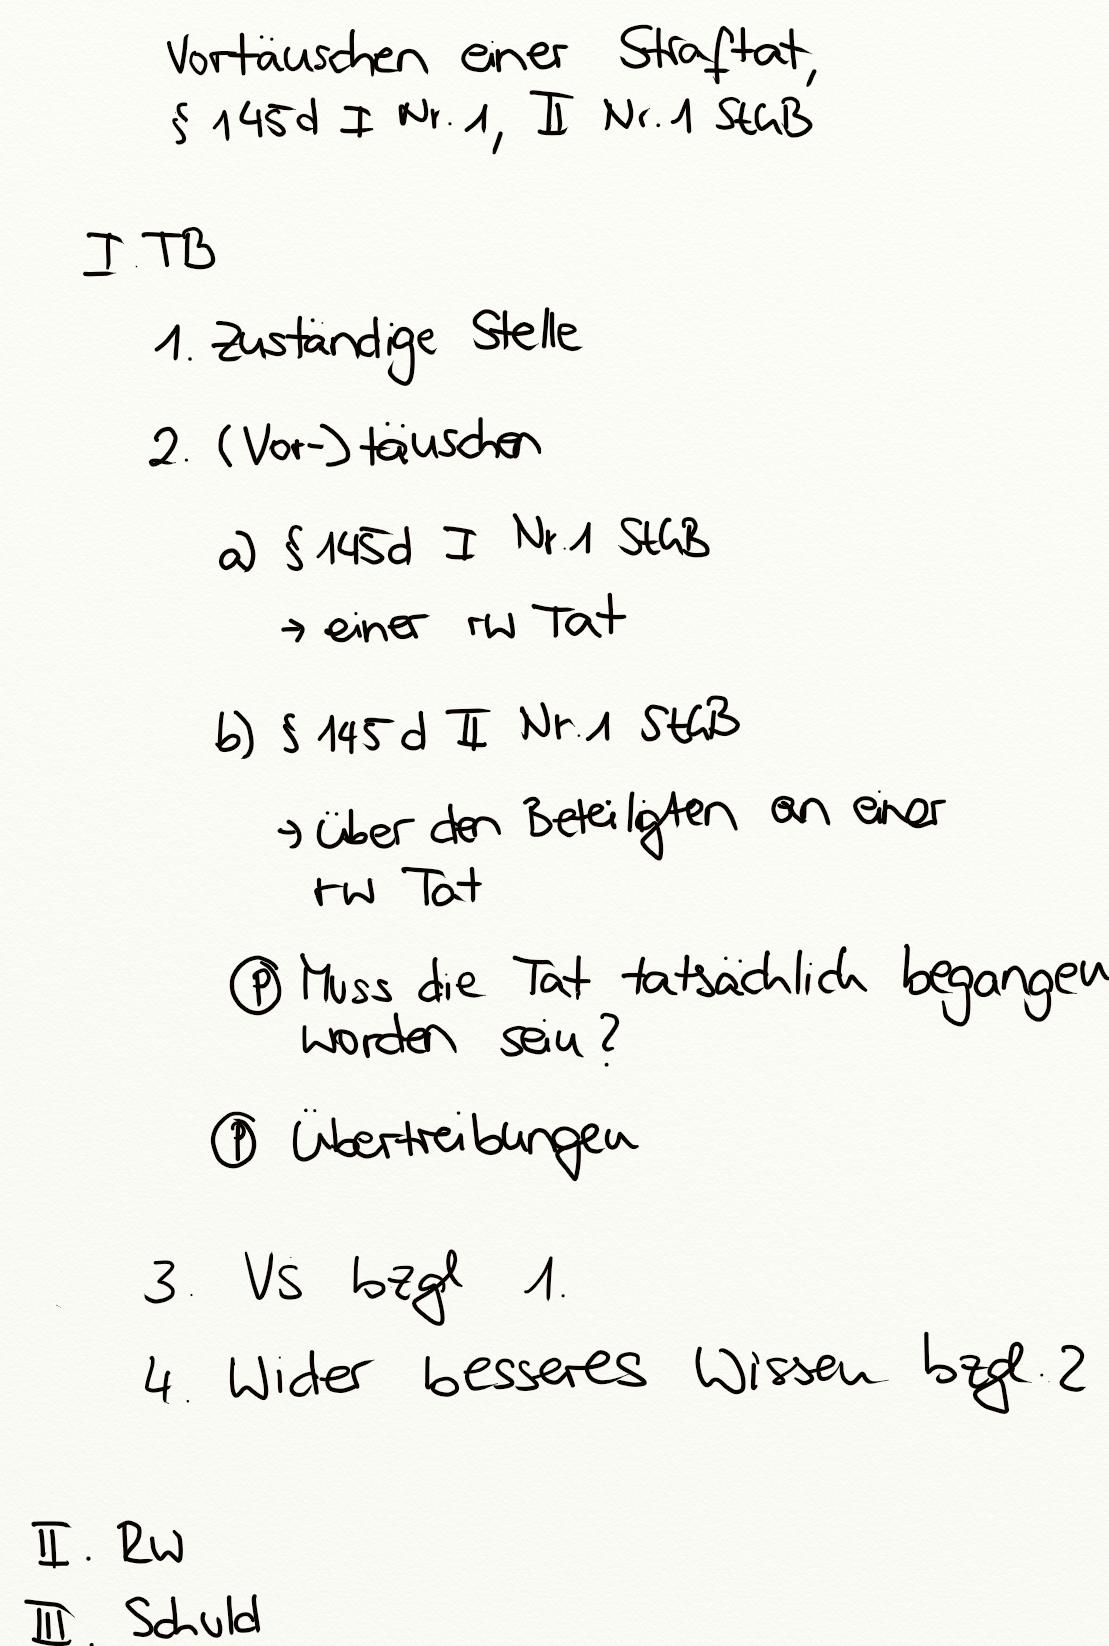 Vortäuschen einer Straftat,
§ 145d I Nr. 1, II Nr. 1 StGB
I. TB
1. Zuständige Stelle
2. (Vor-) täuschen
a) § 145d I Nr. 1 StGB
→ einer rw Tat
b) § 145d II Nr. 1 StGB
→ über den Beteiligten an einer
rw Tat
Ⓟ Muss die Tat tatsächlich begangen
worden sein?
Ⓟ Übertreibungen
3. VS bzgl 1.
4. Wider besseres Wissen bzgl. 2
II. RW
III. Schuld